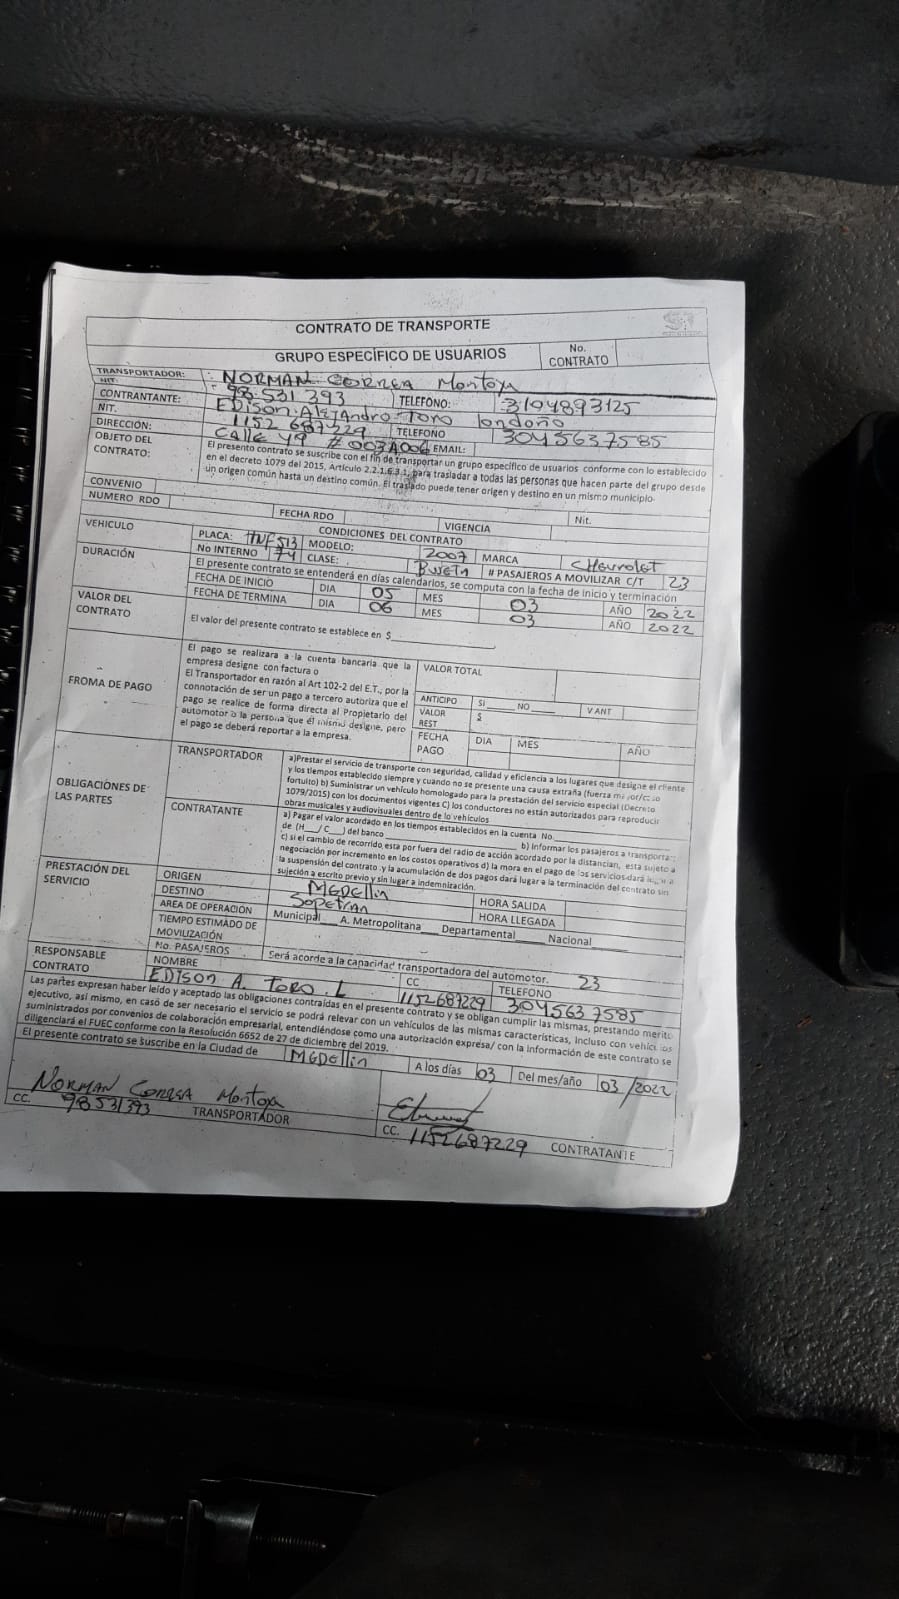 CONTRATO DE TRANSPORTE
GRUPO ESPECÍFICO DE USUARIOS No. CONTRATO
TRANSPORTADOR: NORMAN CORREA Montoya
NIT. 98.531.393 TELEFONO: 3104893125
CONTRANTANTE: EDison Alejandro Toro londoño
NIT. 1152 687229 TELEFONO 3045637585
DIRECCIÓN: Calle 49 # 003A006 EMAIL:
OBJETO DEL CONTRATO: El presento contrato se suscribe con el fin de transportar un grupo específico de usuarios conforme con lo establecido
en el decreto 1079 del 2015, Artículo 2.2.1.6.3.1, para trasladar a todas las personas que hacen parte del grupo desde
un origen común hasta un destino común. El traslado puede tener origen y destino en un mismo municipio.
CONVENIO Nit.
NUMERO RDO FECHA RDO VIGENCIA
CONDICIONES DEL CONTRATO
VEHICULO PLACA: MODELO: 2007 MARCA Chevrolet
No INTERNO 74 CLASE: Buseta # PASAJEROS A MOVILIZAR C/T 23
DURACIÓN El presente contrato se entenderá en días calendarios, se computa con la fecha de inicio y terminación
FECHA DE INICIO DIA 05 MES 03 AÑO 2022
FECHA DE TERMINA DIA 06 MES 03 AÑO 2022
VALOR DEL CONTRATO El valor del presente contrato se establece en $
FROMA DE PAGO El pago se realizara a la cuenta bancaria que la
empresa designe con factura o
El Transportador en razón al Art 102-2 del E.T., por la
connotación de ser un pago a tercero autoriza que el
pago se realice de forma directa al Propietario del
automotor o la persona que él mismo designe, pero
el pago se deberá reportar a la empresa.
VALOR TOTAL
ANTICIPO SI NO V ANT
VALOR REST $
FECHA PAGO DIA MES AÑO
OBLIGACIÓNES DE LAS PARTES
TRANSPORTADOR a)Prestar el servicio de transporte con seguridad, calidad y eficiencia a los lugares que designe el cliente
y los tiempos establecido siempre y cuando no se presente una causa extraña (fuerza mayor/caso
fortuito) b) Suministrar un vehículo homologado para la prestación del servicio especial (Decreto
1079/2015) con los documentos vigentes C) los conductores no están autorizados para reproducir
obras musicales y audiovisuales dentro de lo vehículos
CONTRATANTE a) Pagar el valor acordado en los tiempos establecidos en la cuenta No.
de (H___/ C___) del banco b) Informar los pasajeros a transportar;
c) si el cambio de recorrido esta por fuera del radio de acción acordado por la distancian, esta sujeto a
negociación por incremento en los costos operativos d) la mora en el pago de los servicios dará lugar a
la suspensión del contrato y la acumulación de dos pagos dará lugar a la terminación del contrato sin
sujeción a escrito previo y sin lugar a indemnización.
PRESTACIÓN DEL SERVICIO
ORIGEN MEDEllin HORA SALIDA
DESTINO Sopetran HORA LLEGADA
AREA DE OPERACIÓN Municipal___ A. Metropolitana___ Departamental_____ Nacional______
TIEMPO ESTIMADO DE MOVILIZACIÓN
No. PASAJEROS Será acorde a la capacidad transportadora del automotor. 23
RESPONSABLE CONTRATO NOMBRE CC TELEFONO
EDISON A. TORO. L 1152687229 3045637585
Las partes expresan haber leído y aceptado las obligaciones contraídas en el presente contrato y se obligan cumplir las mismas, prestando merito
ejecutivo, así mismo, en casó de ser necesario el servicio se podrá relevar con un vehículos de las mismas características, incluso con vehículos
suministrados por convenios de colaboración empresarial, entendiéndose como una autorización expresa/ con la información de este contrato se
diligenciará el FUEC conforme con la Resolución 6652 de 27 de diciembre del 2019.
El presente contrato se suscribe en la Ciudad de MEDEllin A los días 03 Del mes/año 03/2022
NORMAN CORREA Montoya
CC. 98531393 TRANSPORTADOR
CC. 1152687229 CONTRATANTE